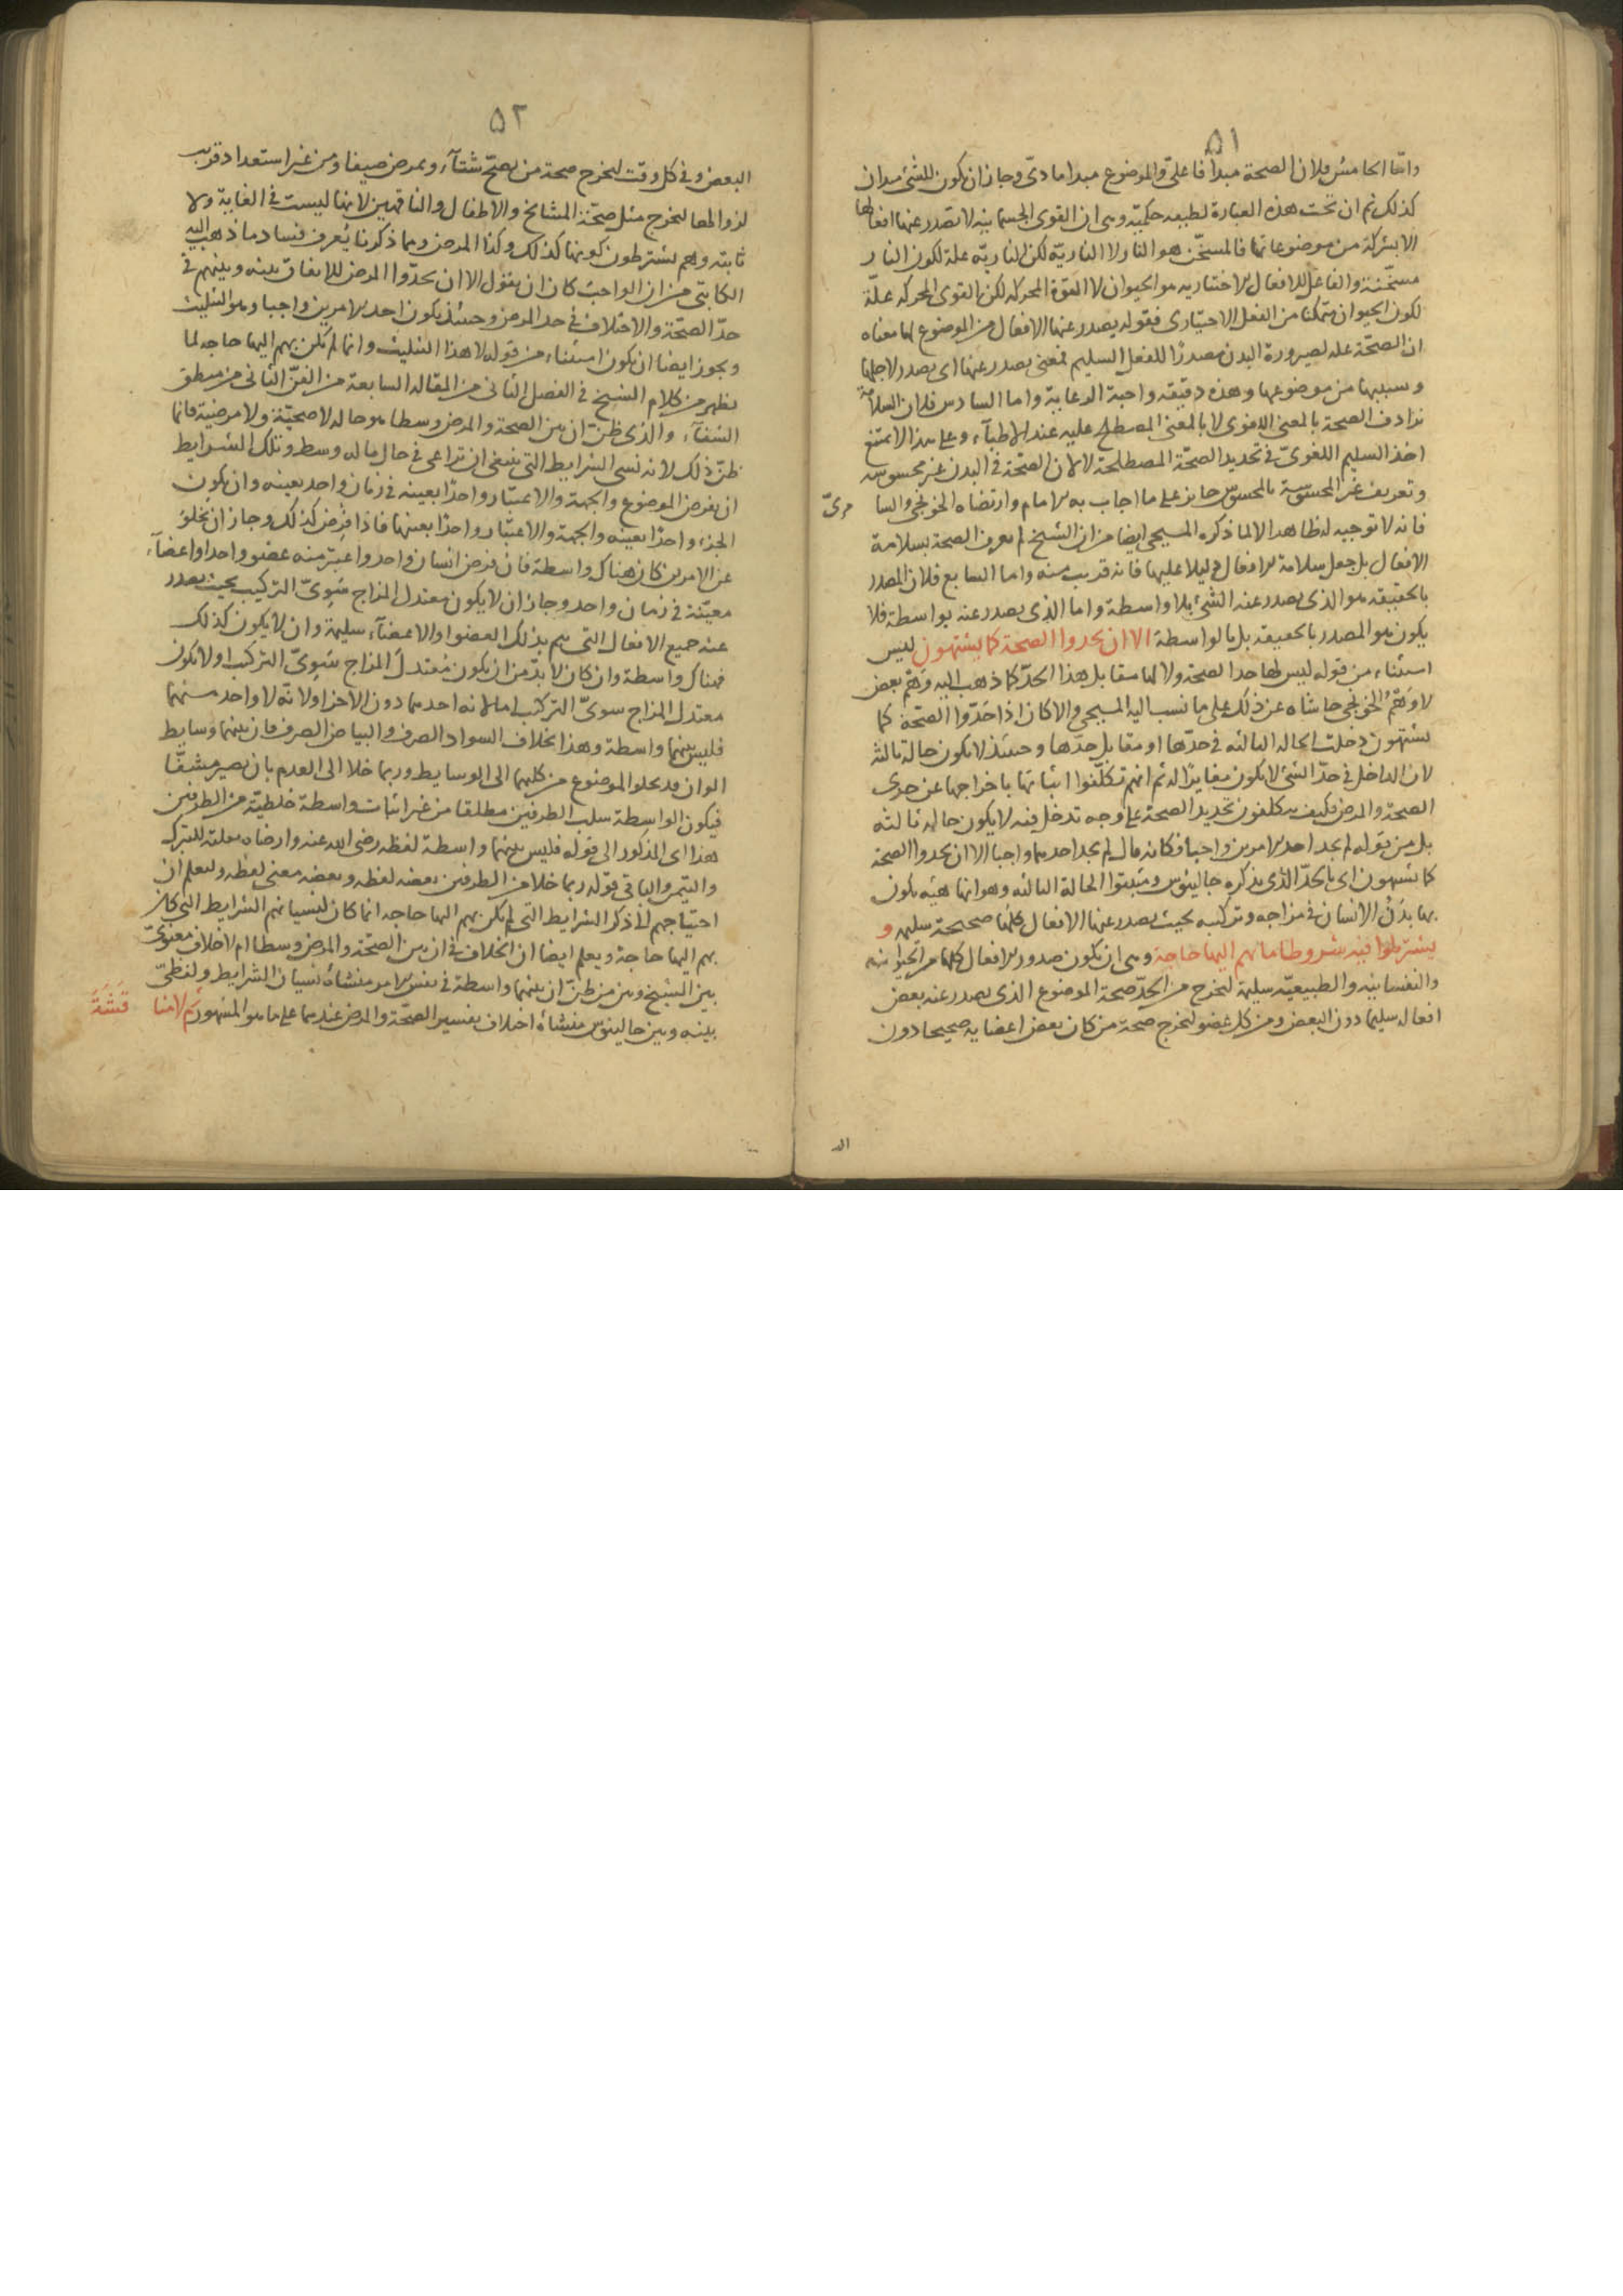 ٥١
واما الخامس فلان الصحة مبدأ فاعلى والموضوع مبدا مادى وجاز ان يكون للشئ مبدان
كذلك ثم ان تحت هذه العبارة لطيفه حكميه وهى ان القوى الجسمانيه لا تصدر عنها افعالها
الا بشركة من موضوعاتها فالمسخن هو النار لا النارية لكن النارية علة لكون النار
مسخنة والفاعل للافعال الاختياريه هو الحيوان لا القوة المحركه لكن القوى المحركه علة
لكون الحيوان متمكنا من الفعل الاختيارى فقوله يصدر عنها الافعال من الموضوع لها معناه
ان الصحة عله لصيرورة البدن مصدرا للفعل السليم فمعنى يصدر عنها اى يصدر لاجلها
وسببها من موضوعها وهذه دقيقه واجبة الرعاية واما السادس فلان السلامة
ترادف الصحة بالمعنى اللغوى لا بالمعنى المصطلح عليه عند الاطباء وعلى هذا لا يمتنع
اخذ السليم اللغوى فى تحديد الصحة المصطلحة لا لان الصحة فى البدن غير محسوسه
وتعريف غير المحسوسة بالمحسوس جايز على ما اجاب به الامام وارتضاه الخونجى والسا مرى
فانه لا توجيه له ظاهرا لا لما ذكره المسيحى ايضا من ان الشيخ لم يعرف الصحة بسلامة
الافعال بل جعل سلامة الافعال دليلا عليها فانه قريب منه واما السابع فلان المصدر
بالحقيقه هو الذى يصدر عنه الشئ بلا واسطة واما الذى يصدر عنه بواسطة فلا
يكون هو المصدر بالحقيقه بل بالواسطة الا ان يحدوا الصحة كما يشتهون ليس
استثناء من قوله ليس لها حد الصحة ولا لها مقابل هذا الحد كما ذهب اليه وهم بعض
لا وهم الخونجى حاشاه عن ذلك على ما نسب اليه المسيحى والا كان اذا حدوا الصحة كما
يشتهون دخلت الحاله الثالثه فى حدها او مقابل حدها وحينئذ لا يكون حالة ثالثة
لان الداخل فى حد الشئ لا يكون مغايرا له ثم انهم تكلفوا اثباتها باخراجها عن حدى
الصحة والمرض فكيف يتكلفون تحديد الصحة على وجه تدخل فيه لا يكون حاله ثالثه
بل من قوله لم يجد احد الامرين واجبا فكانه قال لم يجد احدهما واجبا الا ان يحدوا الصحة
كما يشتهون اى بالحد الذى يذكره جالينوس ومثبتوا الحالة الثالثه وهو انها هيئه يكون
بها بدن الانسان فى مزاجه وتركيبه بحيث يصدر عنها الافعال كلها صحيحة سليمه و
يشترطوا فيه شروطا ما بهم اليها حاجة وهى ان يكون صدور الافعال كلها من الحيوانيه
والنفسانيه والطبيعية سليمة ليخرج من الحد صحة الموضوع الذى يصدر عنه بعض
افعاله سليما دون البعض ومن كل عضو ليخرج صحة من كان بعض اعضايه صحيحا دون
الـ
٥٢
البعض وفى كل وقت ليخرج صحة من يصح شتاء ويمرض صيفا ومن غير استعداد قريب
لزوالها ليخرج مثل صحة المشايخ والاطفال والناقهين لانها ليست فى الغاية ولا
ثابته وهم يشترطون كونها كذلك وكذا المرض ومما ذكرنا يعرف فساد ما ذهب اليه
الكاتبى من ان الواجب كان ان يقول الا ان يحدوا المرض للاتفاق بينه وبينهم فى
حد الصحة والاختلاف فى حد المرض وحينئذ يكون احد الامرين واجبا وهو التثليث
ويجوز ايضا ان يكون استثناء من قوله لا هذا التثليث وانما لم يكن بهم اليها حاجه لما
يظهر من كلام الشيخ فى الفصل الثانى من المقاله السابعة من الفن الثانى من منطق
الشفاء والذى ظن ان بين الصحة والمرض وسطا هو حاله لا صحية ولا مرضية فانما
ظن ذلك لانه نسى الشرايط التى ينبغى ان تراعى فى حال ماله وسط وتلك الشرايط
ان يفرض الموضوع والجهة والاعتبار واحدا بعينه فى زمان واحد بعينه وان يكون
الجزء واحدا بعينه والجهة والاعتبار واحدا بعينها فاذا فرض كذلك وجاز ان يخلو
عن الامرين كان هناك واسطة فان فرض انسان واحد واعتبر منه عضو واحد او اعضاء
معينة فى زمان واحد وجاز ان لا يكون معتدل المزاج سوى التركيب بحيث يصدر
عنه جميع الافعال التى يتم بذلك العضو او الاعضاء سليمة وان لا يكون كذلك
فهناك واسطة وان كان لا بد من ان يكون معتدل المزاج سوى التركيب او لا يكون
معتدل المزاج سوى التركيب اما لانه احدهما دون الاخر او لانه لا واحد منهما
فليس بينهما واسطة وهذا بخلاف السواد الصرف والبياض الصرف فان بينهما وسايط
الوان قد يخلو الموضوع من كليهما الى الوسايط وربما خلا الى العدم بان يصير مشفا
فيكون الواسطة سلب الطرفين مطلقا من غير اثبات واسطة خلطية من الطرفين
هذا اى المذكور الى قوله فليس بينهما واسطة لفظه رضى الله عنه وارضاه نقلته للتبرك
والتيمن والباقى قوله ربما خلا من الطرفين بعضه لفظه وبعضه معنى لفظه وليعلم ان
احتياجهم لا ذكر الشرايط التى لم يكن بهم اليها حاجه انما كان لنسيانهم الشرايط التى كان
بهم اليها حاجة ويعلم ايضا ان الخلاف فى ان بين الصحة والمرض وسطا ام لا خلاف معنوى
بين الشيخ وبين من ظن ان بينهما واسطة فى نفس الامر منشاه نسيان الشرايط ولفظى
بينه وبين جالينوس منشاه اختلاف تفسير الصحة والمرض عندهما على ما هو المشهور ثم لا منا قشة